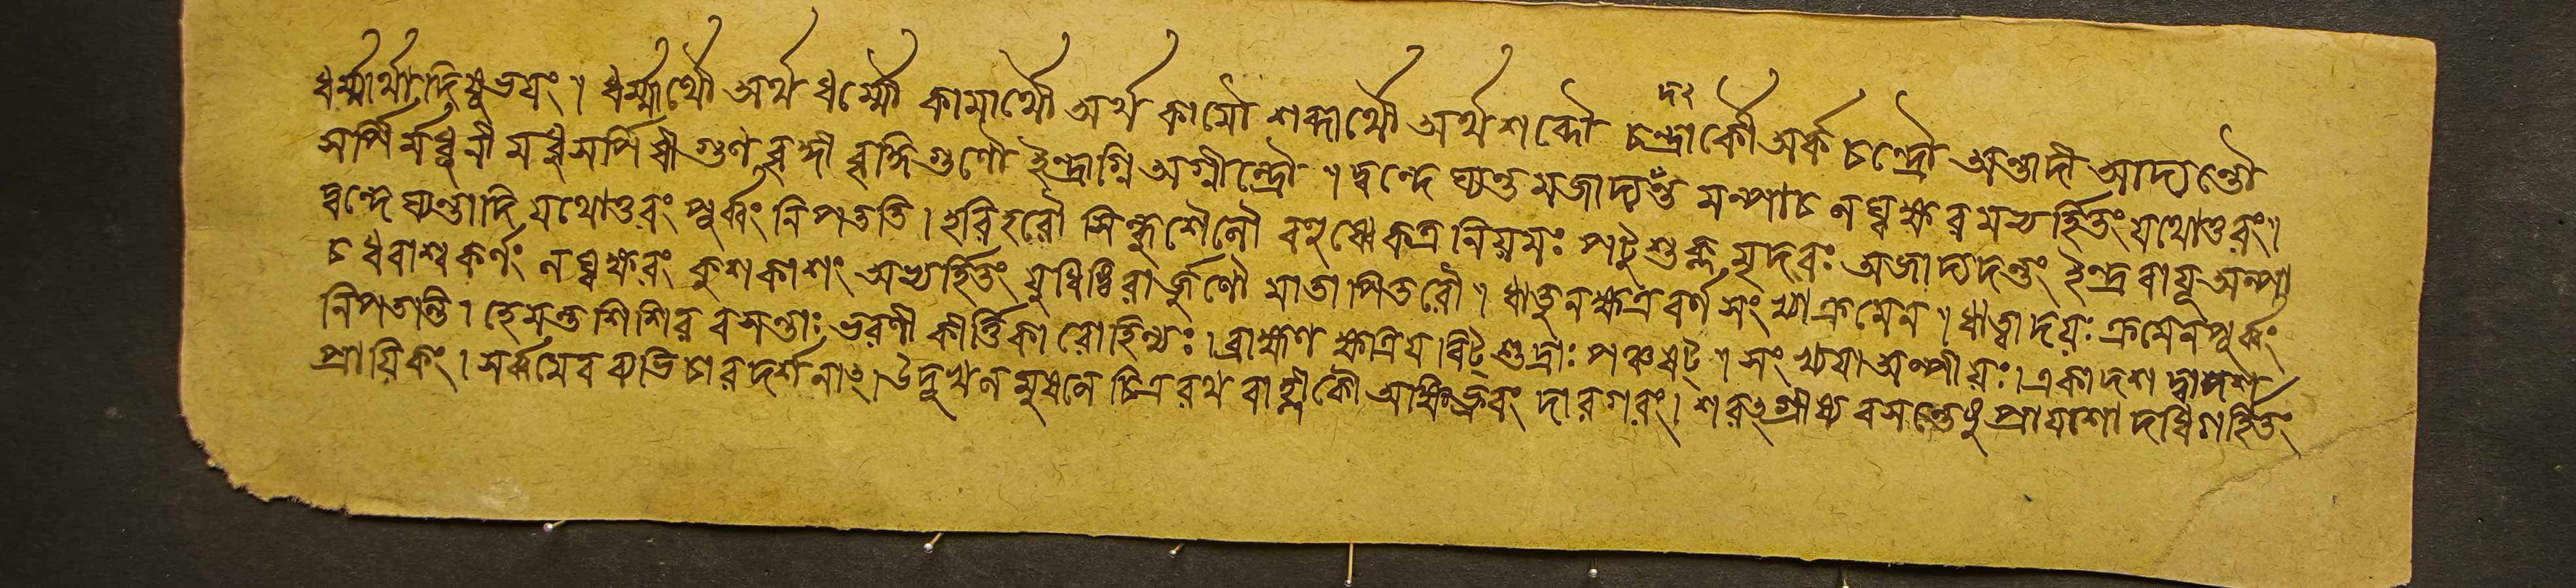 দং
ধর্ম্মার্থাদিষুভযং॥ ধর্ম্মার্থৌ অর্থ ধর্ম্মৌ কামার্থৌ অর্থ কামৌ শব্দার্থৌ অর্থশব্দৌ চন্দ্রার্কৌ অর্ক চন্দ্রৌ অন্তাদী আদ্যন্তৌ
সর্পির্মধুনী মধুসর্পিষী গুণবৃদ্ধী বৃদ্ধিগুণৌ ইন্দ্রাগ্নি অগ্নীন্দ্রৌ॥ দ্বন্দে ঘ্যন্ত মজাদ্যন্ত মল্পাচ লঘ্বক্ষর মভ্যর্হিতং যথোত্তরং।
দ্বন্দে ঘ্যন্তাদি যথোত্তরং পূর্ব্বং নিপততি। হরিহরৌ সিন্ধুশৈলৌ বহুষ্বেকত্র নিয়মঃ পটুশুক্ল মৃদবঃ অজাদ্যদন্তং ইন্দ্র বাযূ অল্পা
চ ধবাশ্বকর্ণং লঘ্বক্ষরং কুশকাশং অভ্যর্হিতং যুধিষ্ঠিরার্জ্জুনৌ মাতা পিতরৌ॥ ঋতুনক্ষত্র বর্ণ সংখ্যা ক্রমেন॥ ঋত্বাদয়ঃ ক্রমেন পূর্ব্বং
নিপতন্তি। হেমন্ত শিশির বসন্তাঃ ভরণী কীর্ত্তিকা রোহিন্যঃ। ব্রাহ্মণ ক্ষত্রিয বিট্শুদ্রাঃ পঞ্চষট্॥ সংখ্যযা অল্পীয়ঃ। একাদশ দ্বাদশ
প্রাযিকং। সর্ব্বমেব ব্যভিচার দর্শনাৎ। উদূখল মুষলে চিত্ররথ বাহ্লীকৌ দারগবং। শরৎগ্রীষ্ম বসন্তেষু প্রাযাশো দধিগর্হিতং